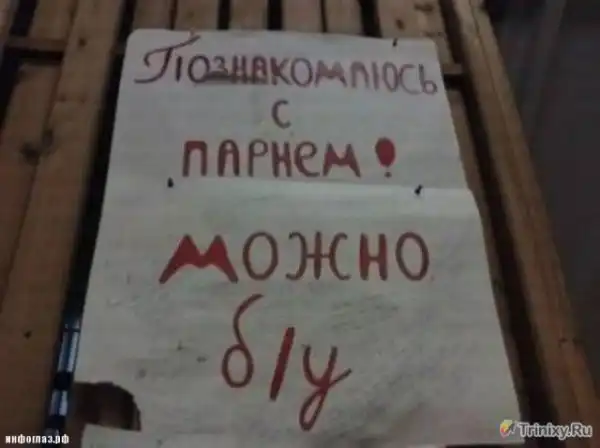 Познакомлюсь
с
парнем!
можно
б/у
инфоглаз.рф
Trinixy.Ru